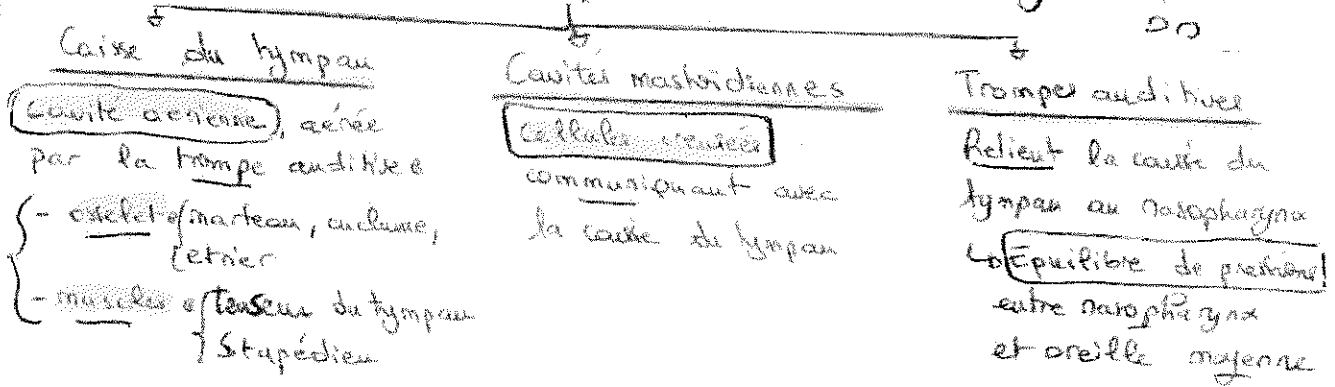 Caisse du tympan
cavité aérienne, aérée
par la trompe auditive
- osselets marteau, enclume,
étrier
- muscles tenseur du tympan
Stapédien
Cavités mastoïdiennes
cellules
communiquant avec
la caisse du tympan
Trompes auditives
Relient la caisse du
tympan au nasopharynx
↳ Equilibre de pressions!
entre nasopharynx
et oreille moyenne